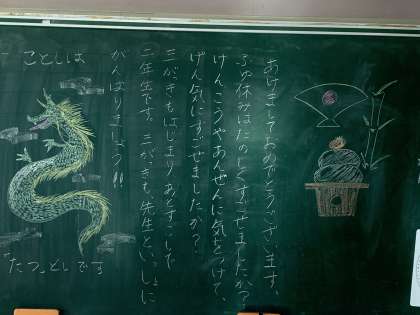 あけましておめでとうございます。
ふゆ休みはたのしくすごせましたか？
けんこうやあんぜんに気をつけて、
げん気にすごせましたか？
三がっきもはじまり、あとすこしで
二年生です。三がっきも、先生といっしょに
がんばりましょう!!
ことしは
「たつ」どしです